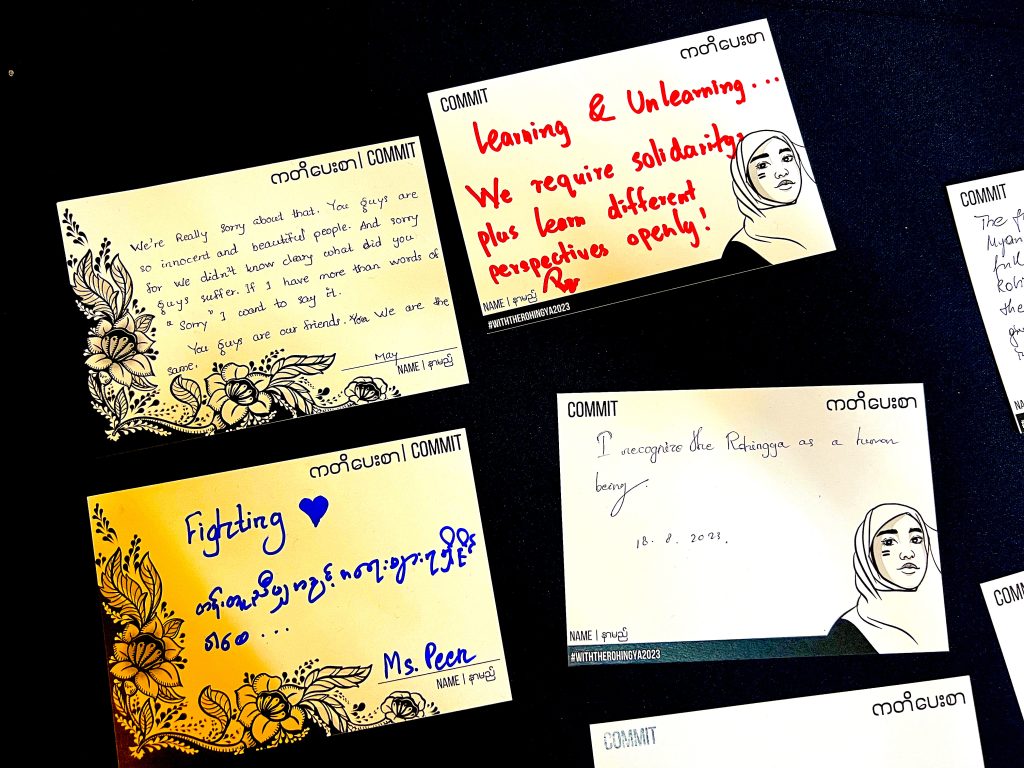 ကတိပေးစာ | COMMIT
We're Really sorry about that. You guys are
so innocent and beautiful people. And sorry
for we didn't know cleary what did you
guys suffer. If I have more than words of
"sorry" I want to say it.
You guys are our friends. We are the
same.
May
NAME | နာမည်
COMMIT
ကတိပေးစာ
Learning & Unlearning...
We require solidarity,
plus learn different
perspectives openly!
NAME | နာမည်
#WITHTHEROHINGYA2023
ကတိပေးစာ | COMMIT
Fighting
တန်းတူညီမျှ
...
Ms. Peen
NAME | နာမည်
COMMIT
ကတိပေးစာ
I recognize the Rohingya as a human
being.
18. 8. 2023.
NAME | နာမည်
#WITHTHEROHINGYA2023
COMMIT
The
Myan
COMMIT
ကတိပေးစာ